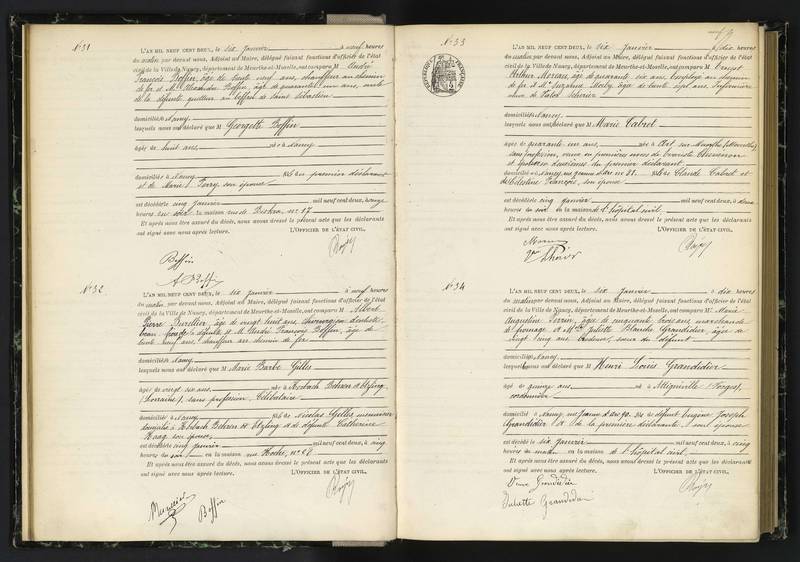 N°31
L'AN MIL NEUF CENT DEUX, le six Janvier à neuf heures
du matin par devant nous, Adjoint au Maire, délégué faisant fonctions d'officier de l'état
civil de la Ville de Nancy, département de Meurthe-et-Moselle, ont comparu M André
François Boffin, âgé de trente neuf ans, chauffeur au chemin
de fer et M Alexandre Boffin, âgé de quarante un ans, oncle
de la défunte
domiciliés à Nancy
lesquels nous ont déclaré que M Georgette Boffin
âgée de huit ans née à Nancy
domiciliée à Nancy fille du premier déclarant
et de Marie Ferry, son épouse
est décédée cinq janvier mil neuf cent deux, à onze
heures du soir en la maison rue de n° 17
Et après nous être assuré du décès, nous avons dressé le présent acte que les déclarants
ont signé avec nous après lecture. L'OFFICIER DE L'ÉTAT CIVIL,
Boffin
A Boffin
N°32
L'AN MIL NEUF CENT DEUX, le six janvier à neuf heures
du matin par devant nous, Adjoint au Maire, délégué faisant fonctions d'officier de l'état
civil de la Ville de Nancy, département de Meurthe-et-Moselle, ont comparu M Albert
Pierre âgé de vingt huit ans, chirurgien dentiste
et M André François Boffin, âgé de
trente neuf ans, chauffeur au chemin de fer
domiciliés à Nancy
lesquels nous ont déclaré que M Marie Barbe Gilles
âgée de vingt six ans née à
(Lorraine), sans profession, Célibataire
domiciliée à Nancy fille de Nicolas Gilles, menuisier
domicilié à et de défunte Catherine
Haag son épouse
est décédée cinq janvier mil neuf cent deux, à cinq
heures du soir en la maison rue Hoche, n° 28
Et après nous être assuré du décès, nous avons dressé le présent acte que les déclarants
ont signé avec nous après lecture. L'OFFICIER DE L'ÉTAT CIVIL,
Boffin
N°33
RÉPUBLIQUE FRANÇAISE
L'AN MIL NEUF CENT DEUX, le six janvier à dix heures
du matin par devant nous, Adjoint au Maire, délégué faisant fonctions d'officier de l'état
civil de la Ville de Nancy, département de Meurthe-et-Moselle, ont comparu M Ernest
Arthur Moreau, âgé de quarante six ans, Employé au chemin
de fer et M Suzanne âgée de trente sept ans, Infirmière
domiciliés à Nancy
lesquels nous ont déclaré que M Marie Cabret
âgée de quarante un ans née à Art sur Meurthe (Meurthe)
sans profession, veuve en premières noces de
et épouse en deuxièmes du premier déclarant
domiciliée à Nancy, rue Jeanne d'Arc n° 31 fille de Claude Cabret et
de Célestine François, son épouse
est décédée cinq janvier mil neuf cent deux, à deux
heures du soir en la maison de l'hôpital civil
Et après nous être assuré du décès, nous avons dressé le présent acte que les déclarants
ont signé avec nous après lecture. L'OFFICIER DE L'ÉTAT CIVIL,
N°34
L'AN MIL NEUF CENT DEUX, le six janvier à dix heures
du matin par devant nous, Adjoint au Maire, délégué faisant fonctions d'officier de l'état
civil de la Ville de Nancy, département de Meurthe-et-Moselle, ont comparu M Marie
Augustine Perrin, âgée de cinquante trois ans, marchande
de fromage et M Juliette Blanche Grandidier, âgée de
vingt cinq ans soeur du défunt
domiciliés à Nancy
lesquels nous ont déclaré que M Henri Louis Grandidier
âgé de quinze ans né à Attigneville (Vosges)
cordonnier
domicilié à Nancy, rue Jeanne d'Arc 90 fils de défunt Eugène Joseph
Grandidier et de la première déclarante, son épouse
est décédé le six janvier mil neuf cent deux, à cinq
heures du matin en la maison de l'hôpital civil
Et après nous être assuré du décès, nous avons dressé le présent acte que les déclarants
ont signé avec nous après lecture. L'OFFICIER DE L'ÉTAT CIVIL,
Veuve Grandidier
Juliette Grandidier